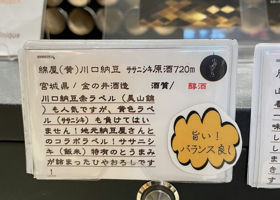 綿屋(黄)川口納豆 ササニシキ原酒720m
宮城県/金の井酒造 酒質/ 醇酒
川口納豆赤ラベル(美山錦
)も人気ですが、黄色ラベ
ル(ササニシキ)も負けてはい
ません!地元納豆屋さんと
のコラボラベル!ササニシ
キ(飯米)特有のとうまみ
が詰まったひやおろしです
!
旨い!
バランス良し
nique